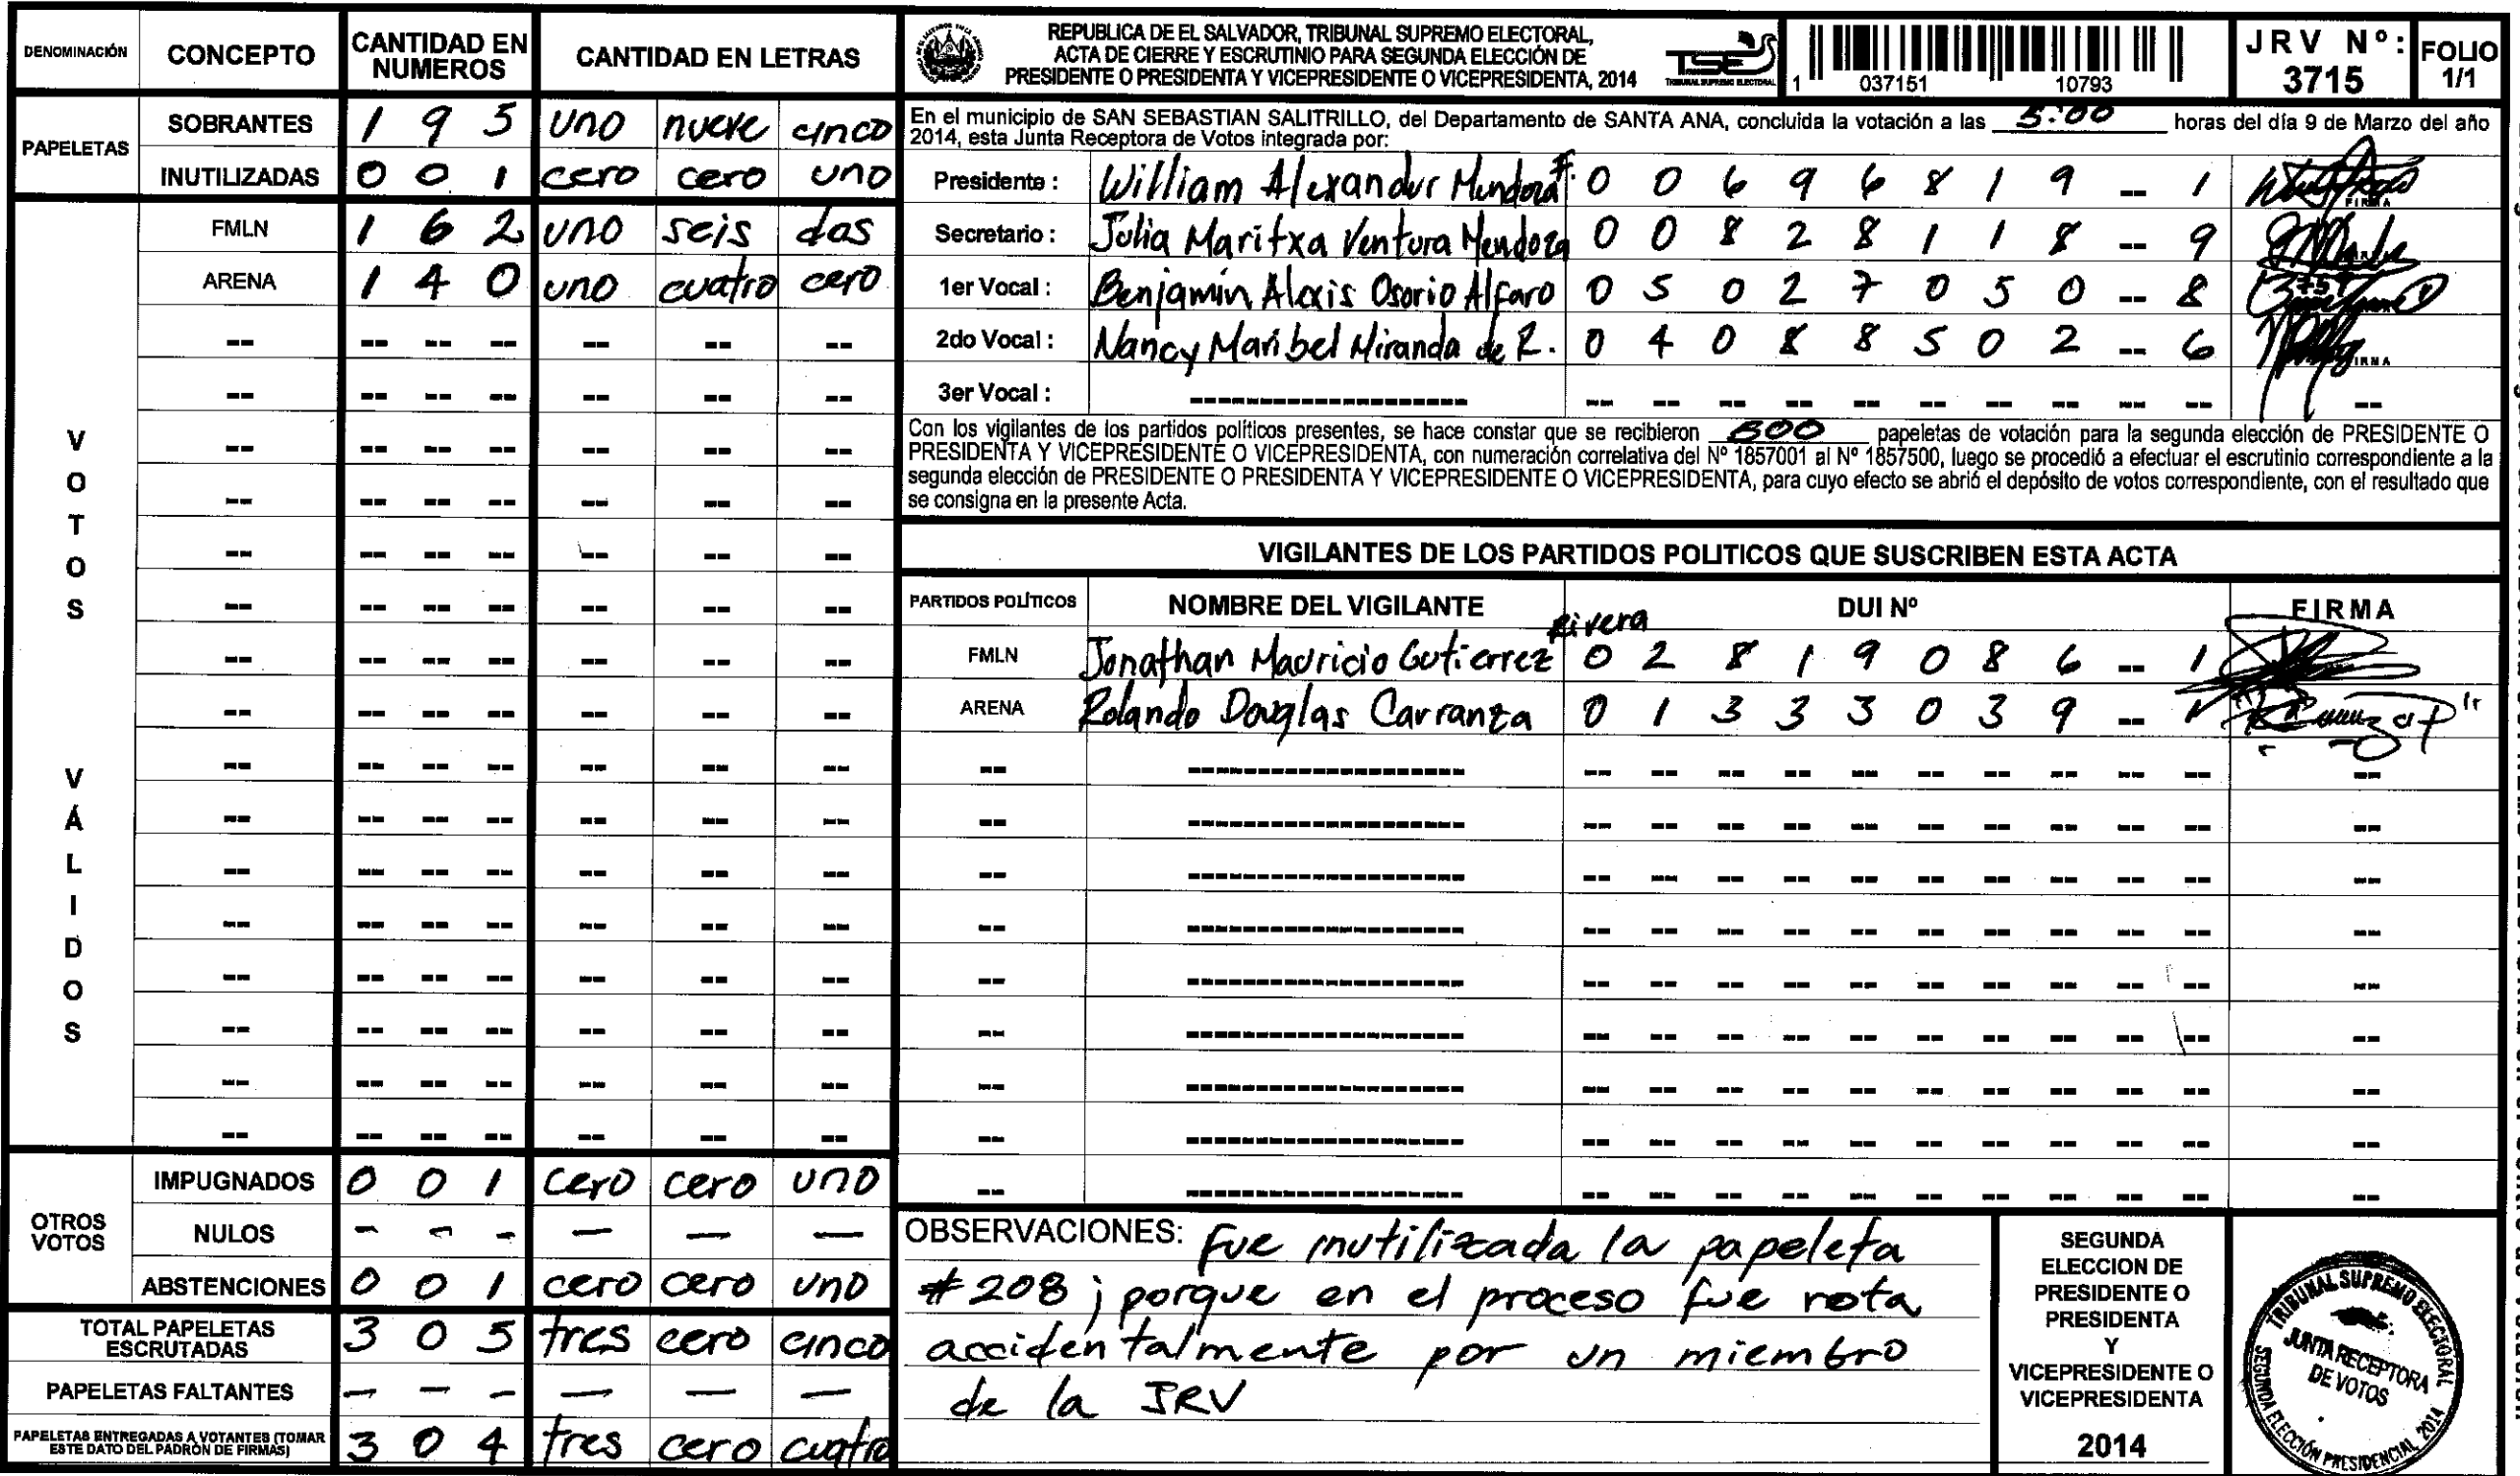 DENOMINACIÓN CONCEPTO CANTIDAD EN NUMEROS CANTIDAD EN LETRAS
PAPELETAS
SOBRANTES 1 9 5 uno nueve cinco
INUTILIZADAS 0 0 1 cero cero uno
VOTOS VÁLIDOS
FMLN 1 6 2 uno seis dos
ARENA 1 4 0 uno cuatro cero
OTROS VOTOS
IMPUGNADOS 0 0 1 cero cero uno
NULOS - - - — — —
ABSTENCIONES 0 0 1 cero cero uno
TOTAL PAPELETAS ESCRUTADAS 3 0 5 tres cero cinco
PAPELETAS FALTANTES - - - — — —
PAPELETAS ENTREGADAS A VOTANTES (TOMAR ESTE DATO DEL PADRÓN DE FIRMAS) 3 0 4 tres cero cuatro
REPUBLICA DE EL SALVADOR, TRIBUNAL SUPREMO ELECTORAL,
ACTA DE CIERRE Y ESCRUTINIO PARA SEGUNDA ELECCIÓN DE
PRESIDENTE O PRESIDENTA Y VICEPRESIDENTE O VICEPRESIDENTA, 2014
TSE
TRIBUNAL SUPREMO ELECTORAL
1 037151 10793
JRV Nº: 3715
FOLIO 1/1
En el municipio de SAN SEBASTIAN SALITRILLO, del Departamento de SANTA ANA, concluida la votación a las 5:00 horas del día 9 de Marzo del año
2014, esta Junta Receptora de Votos integrada por:
Presidente : William Alexander Mendoza F. 0 0 6 9 6 8 1 9 -- 1
Secretario : Julia Maritxa Ventura Mendoza 0 0 8 2 8 1 1 8 -- 9
1er Vocal : Benjamín Alexis Osorio Alfaro 0 5 0 2 7 0 5 0 -- 8
2do Vocal : Nancy Maribel Miranda de R. 0 4 0 8 8 5 0 2 -- 6
3er Vocal :
Con los vigilantes de los partidos políticos presentes, se hace constar que se recibieron 500 papeletas de votación para la segunda elección de PRESIDENTE O
PRESIDENTA Y VICEPRESIDENTE O VICEPRESIDENTA, con numeración correlativa del Nº 1857001 al Nº 1857500, luego se procedió a efectuar el escrutinio correspondiente a la
segunda elección de PRESIDENTE O PRESIDENTA Y VICEPRESIDENTE O VICEPRESIDENTA, para cuyo efecto se abrió el depósito de votos correspondiente, con el resultado que
se consigna en la presente Acta.
VIGILANTES DE LOS PARTIDOS POLITICOS QUE SUSCRIBEN ESTA ACTA
PARTIDOS POLÍTICOS NOMBRE DEL VIGILANTE DUI Nº FIRMA
FMLN Jonathan Mauricio Gutierrez Rivera 0 2 8 1 9 0 8 6 -- 1
ARENA Rolando Douglas Carranza 0 1 3 3 3 0 3 9 -- 1
OBSERVACIONES: Fue inutilizada la papeleta
#208; porque en el proceso fue rota
accidentalmente por un miembro
de la JRV
SEGUNDA
ELECCION DE
PRESIDENTE O
PRESIDENTA
Y
VICEPRESIDENTE O
VICEPRESIDENTA
2014
TRIBUNAL SUPREMO ELECTORAL
JUNTA RECEPTORA
DE VOTOS
SEGUNDA ELECCIÓN PRESIDENCIAL 2014